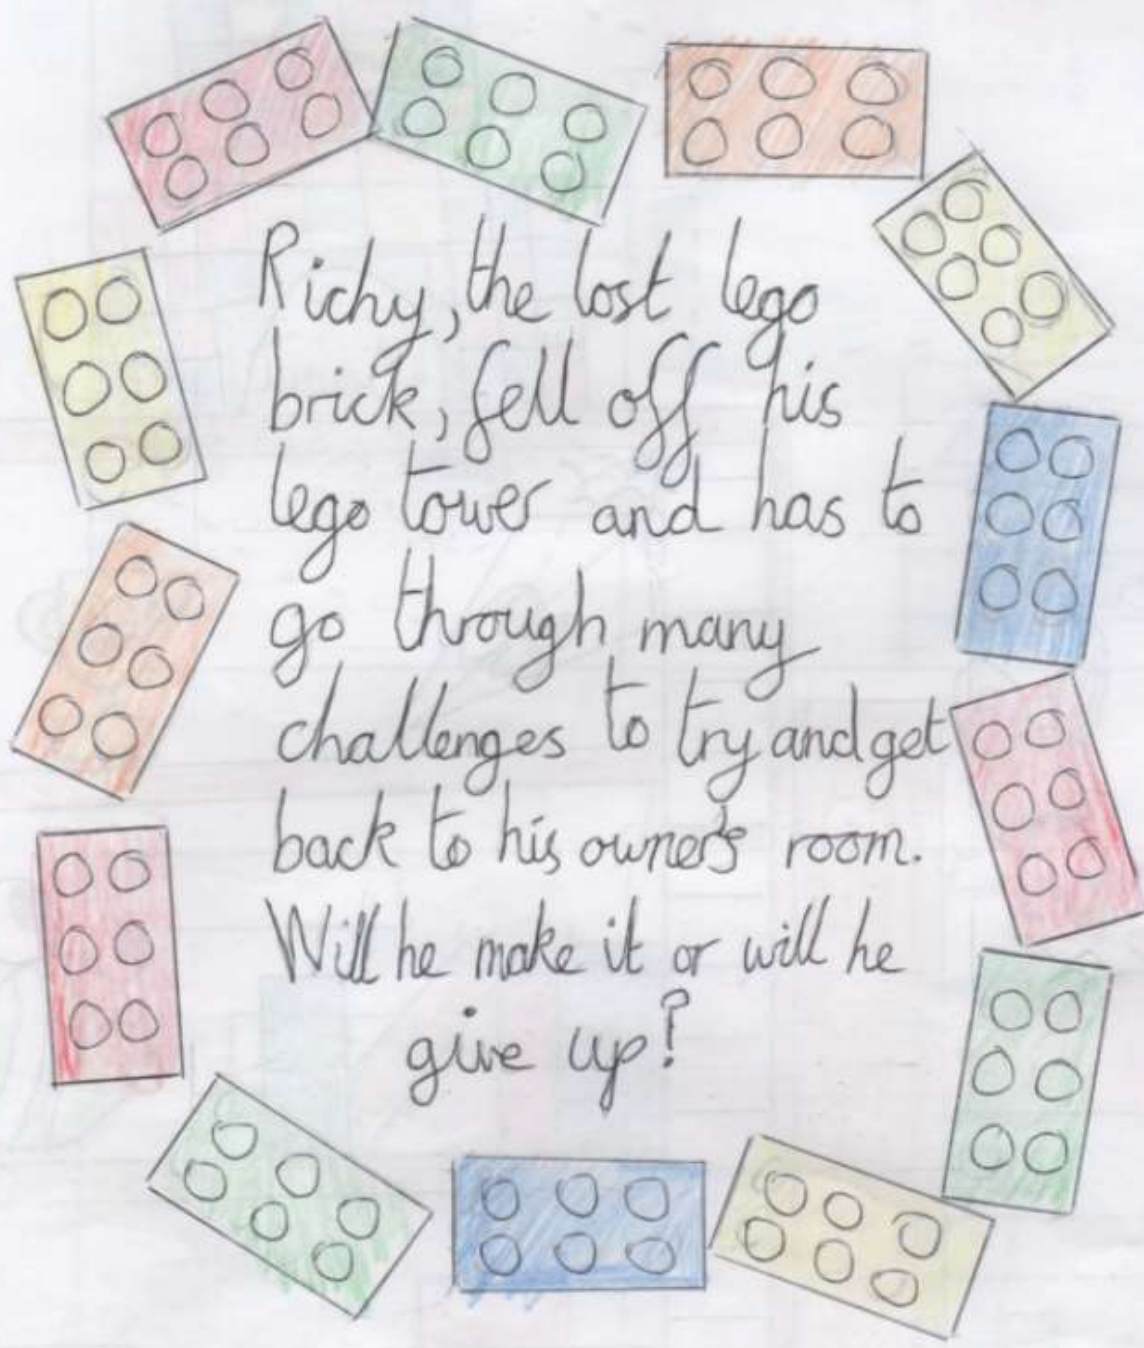 Richy, the lost lego
brick, fell off his
lego tower and has to
go through many
challenges to try and get
back to his owner's room.
Will he make it or will he
give up?